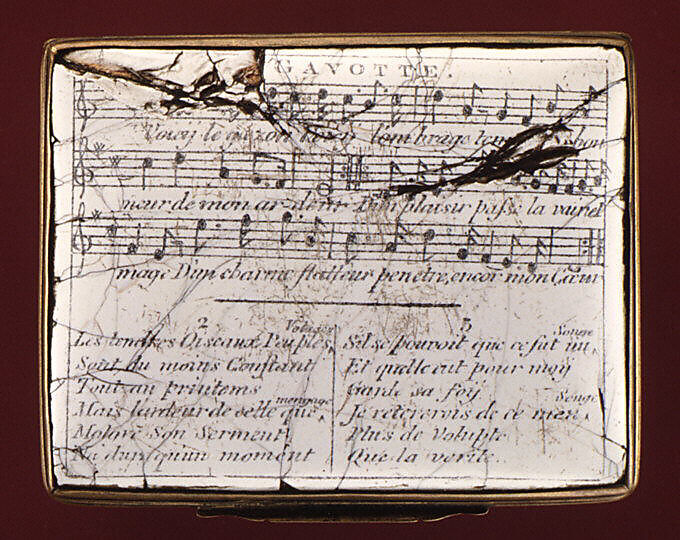 GAVOTTE.
Voicy le gazon l'ombrage
neur de mon ardeur D'un plaisir passé la
mage D'un charme flatteur penetre, encor mon Cœur
2
Volages
Les tendres Oiseaux Peuples
Sont du moins Constant
Tout au printems
mengage
Mais lardeur de celle que
Malgré Son Serment
Na duré qu'un moment
3
Songe
Sil se pouroit que ce fut un
Et quelle eut pour moy
Gardé sa foy
Songe
Je retererois de ce men
Plus de Volupté
Que la verité.